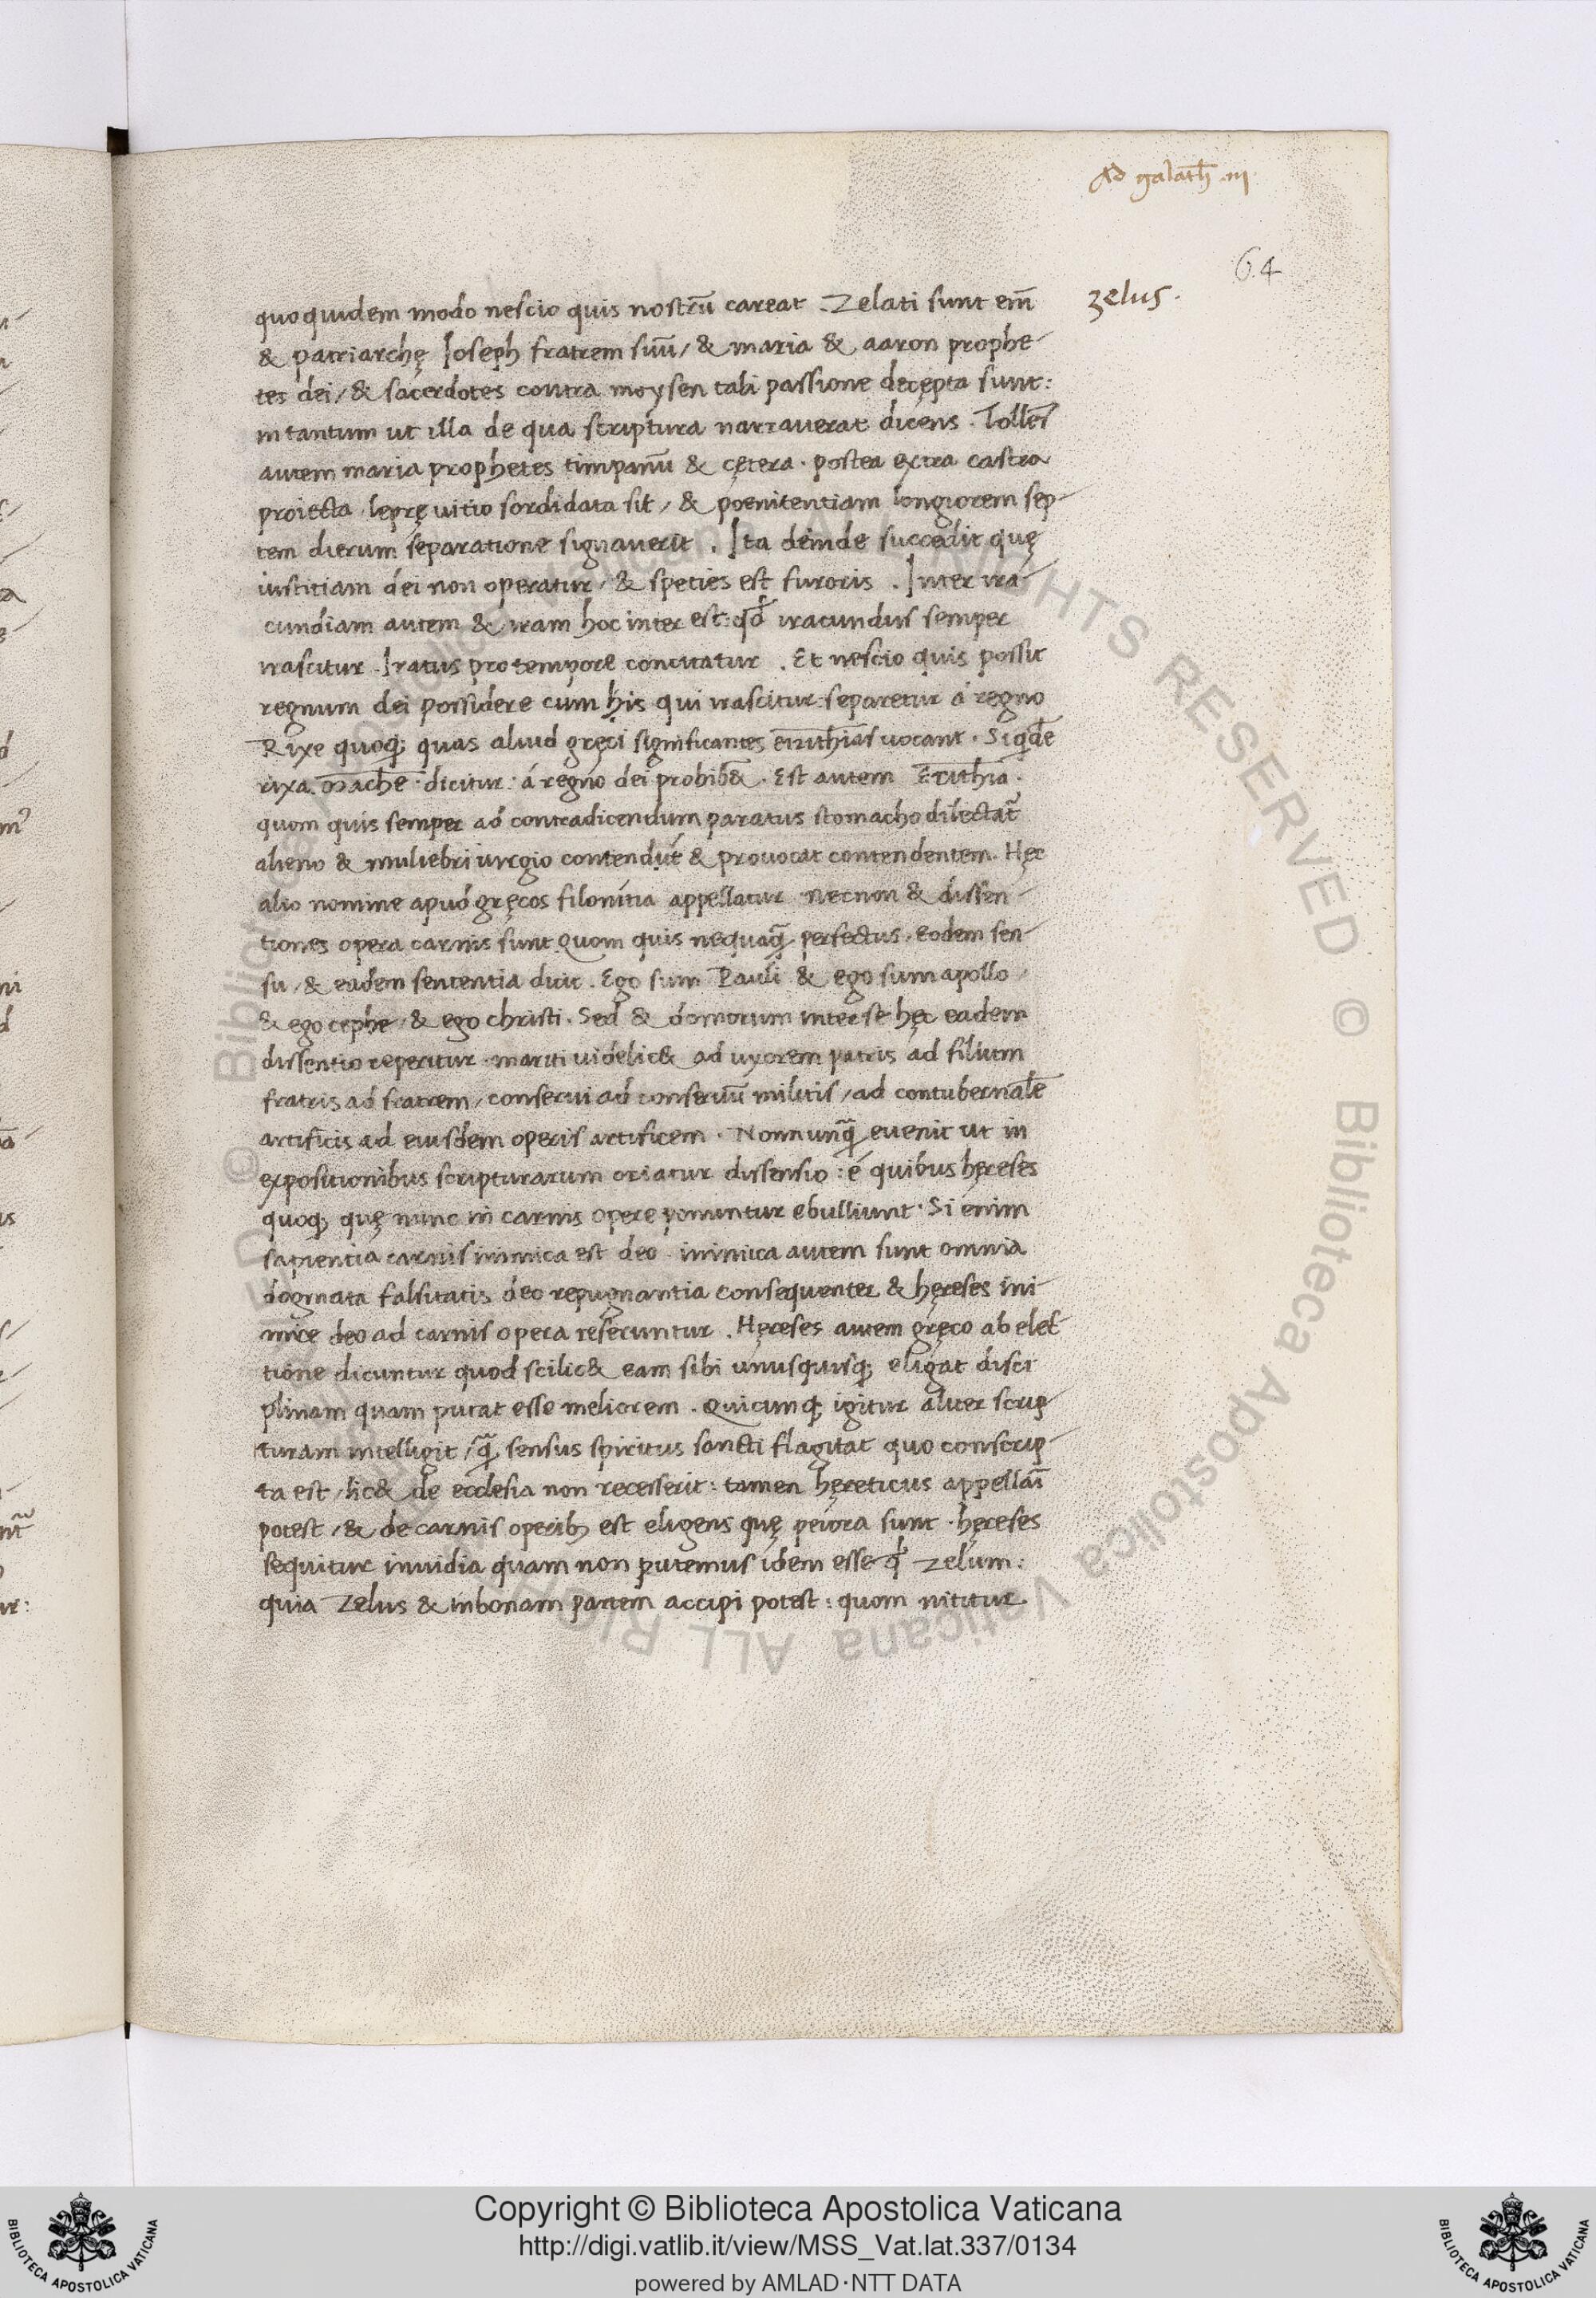 Ad galath̄ .iii
64
zelus.
quo quidem modo nescio quis nostrū careat . Zelati sunt em̄
& patriarchę Ioseph fratrem suū / & maria & aaron prophe-
tes dei / & sacerdotes contra moysen tali passione decępta sunt:
in tantum ut illa de qua scriptura narrauerat dicens . Tollēs
autem maria prophetes timpanū & cętera . postea extra castra
proiecta leprę uitio sordidata sit / & poenitentiam longiorem sep-
tem dierum separatione signauerit . Ita deinde succedit quę
iustitiam dei non operatur / & speties est furoris . Inter ira-
cundiam autem & iram hoc inter est: qđ iracundus semper
irascitur . Iratus pro tempore concitatur . Et nescio quis possit
regnum dei possidere cum his qui irascitur: separetur á regno
Rixe quoq; quas aliud gręci significantes erithias uocant . Siqdē
rixa mache dicitur: á regno dei prohib& . Est autem Erithia .
quom quis semper ad contradicendum paratus stomacho dilectat̄
alieno & muliebri iurgio contendit & prouocat contendentem . Hęc
alio nomine apud gręcos filonitia appellatur . necnon & dissen-
tiones opera carnis sunt Quom quis nequaq̄ perfectus . eodem sen-
su / & eadem sententia dicit . Ego sum Pauli & ego sum apollo /
& ego cephe / & ego christi . Sed & domorum inter se hęc eadem
dissentio reperitur . mariti uidelic& ad uxorem patris ad filium
fratris ad fratrem / conserui ad conseruū militis / ad contubernalē
artificis ad eiusdem operis artificem . Nonnunq̄ euenit ut in
expositionibus scripturarum oriatur dissensio: é quibus hęreses
quoq; quę nunc in carnis opere ponuntur ebulliunt . Si enim
sapientia carnis inimica est deo . inimica autem sunt omnia
dogmata falsitatis deo repugnantia consequenter & hęreses ini-
mice deo ad carnis opera referuntur . Hęreses autem gręco ab elec-
tione dicuntur quod scilic& eam sibi unusquisq; eligat disci
plinam quam putat esse meliorem . Quicunq; igitur aliter scrip-
turam intelligit / q̄ sensus spiritus sancti flagitat quo conscrip-
ta est / lic& de ecclesia non recesserit: tamen hęreticus appellari
potest / & de carnis operib; est eligens quę peiora sunt . hęreses
sequitur inuidia quam non putemus idem esse qđ zelum:
quia Zelus & in bonam partem accipi potest: quom nititur
© Biblioteca Apostolica Vaticana ALL RIGHTS RESERVED
Copyright © Biblioteca Apostolica Vaticana
http://digi.vatlib.it/view/MSS_Vat.lat.337/0134
powered by AMLAD·NTT DATA
BIBLIOTECA APOSTOLICA VATICANA
BIBLIOTECA APOSTOLICA VATICANA